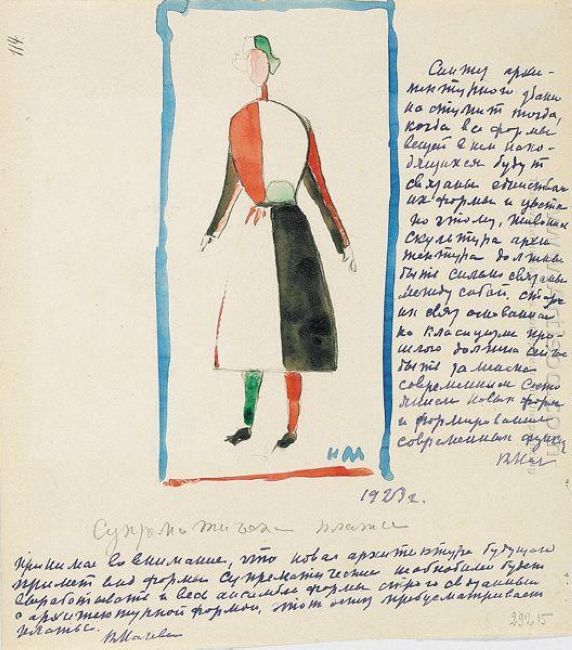 114.
архи-
тектурного здан
наступит тогда,
когда все формы
вещей в нем нахо-
дящихся будут
связаны единством
их формы и цвета
по этому, живопись
скульптура архи
тектура должны
быть сильно связаны
между собой.
их связь основанная
на класицизме про
шлого должна
быть заменена
современным состо
янием новых форм
и формированием
современная
К Мал
КМ
1923 г.
Супрематическ платье
принимая во внимание, что новая архитектура будущего
примет вид формы Супрематические необходимо будет
выработать и весь ансамбль формы строго связанных
с архитектурной формой, этот эскиз предусматривает
платье.
К Малеви
29215